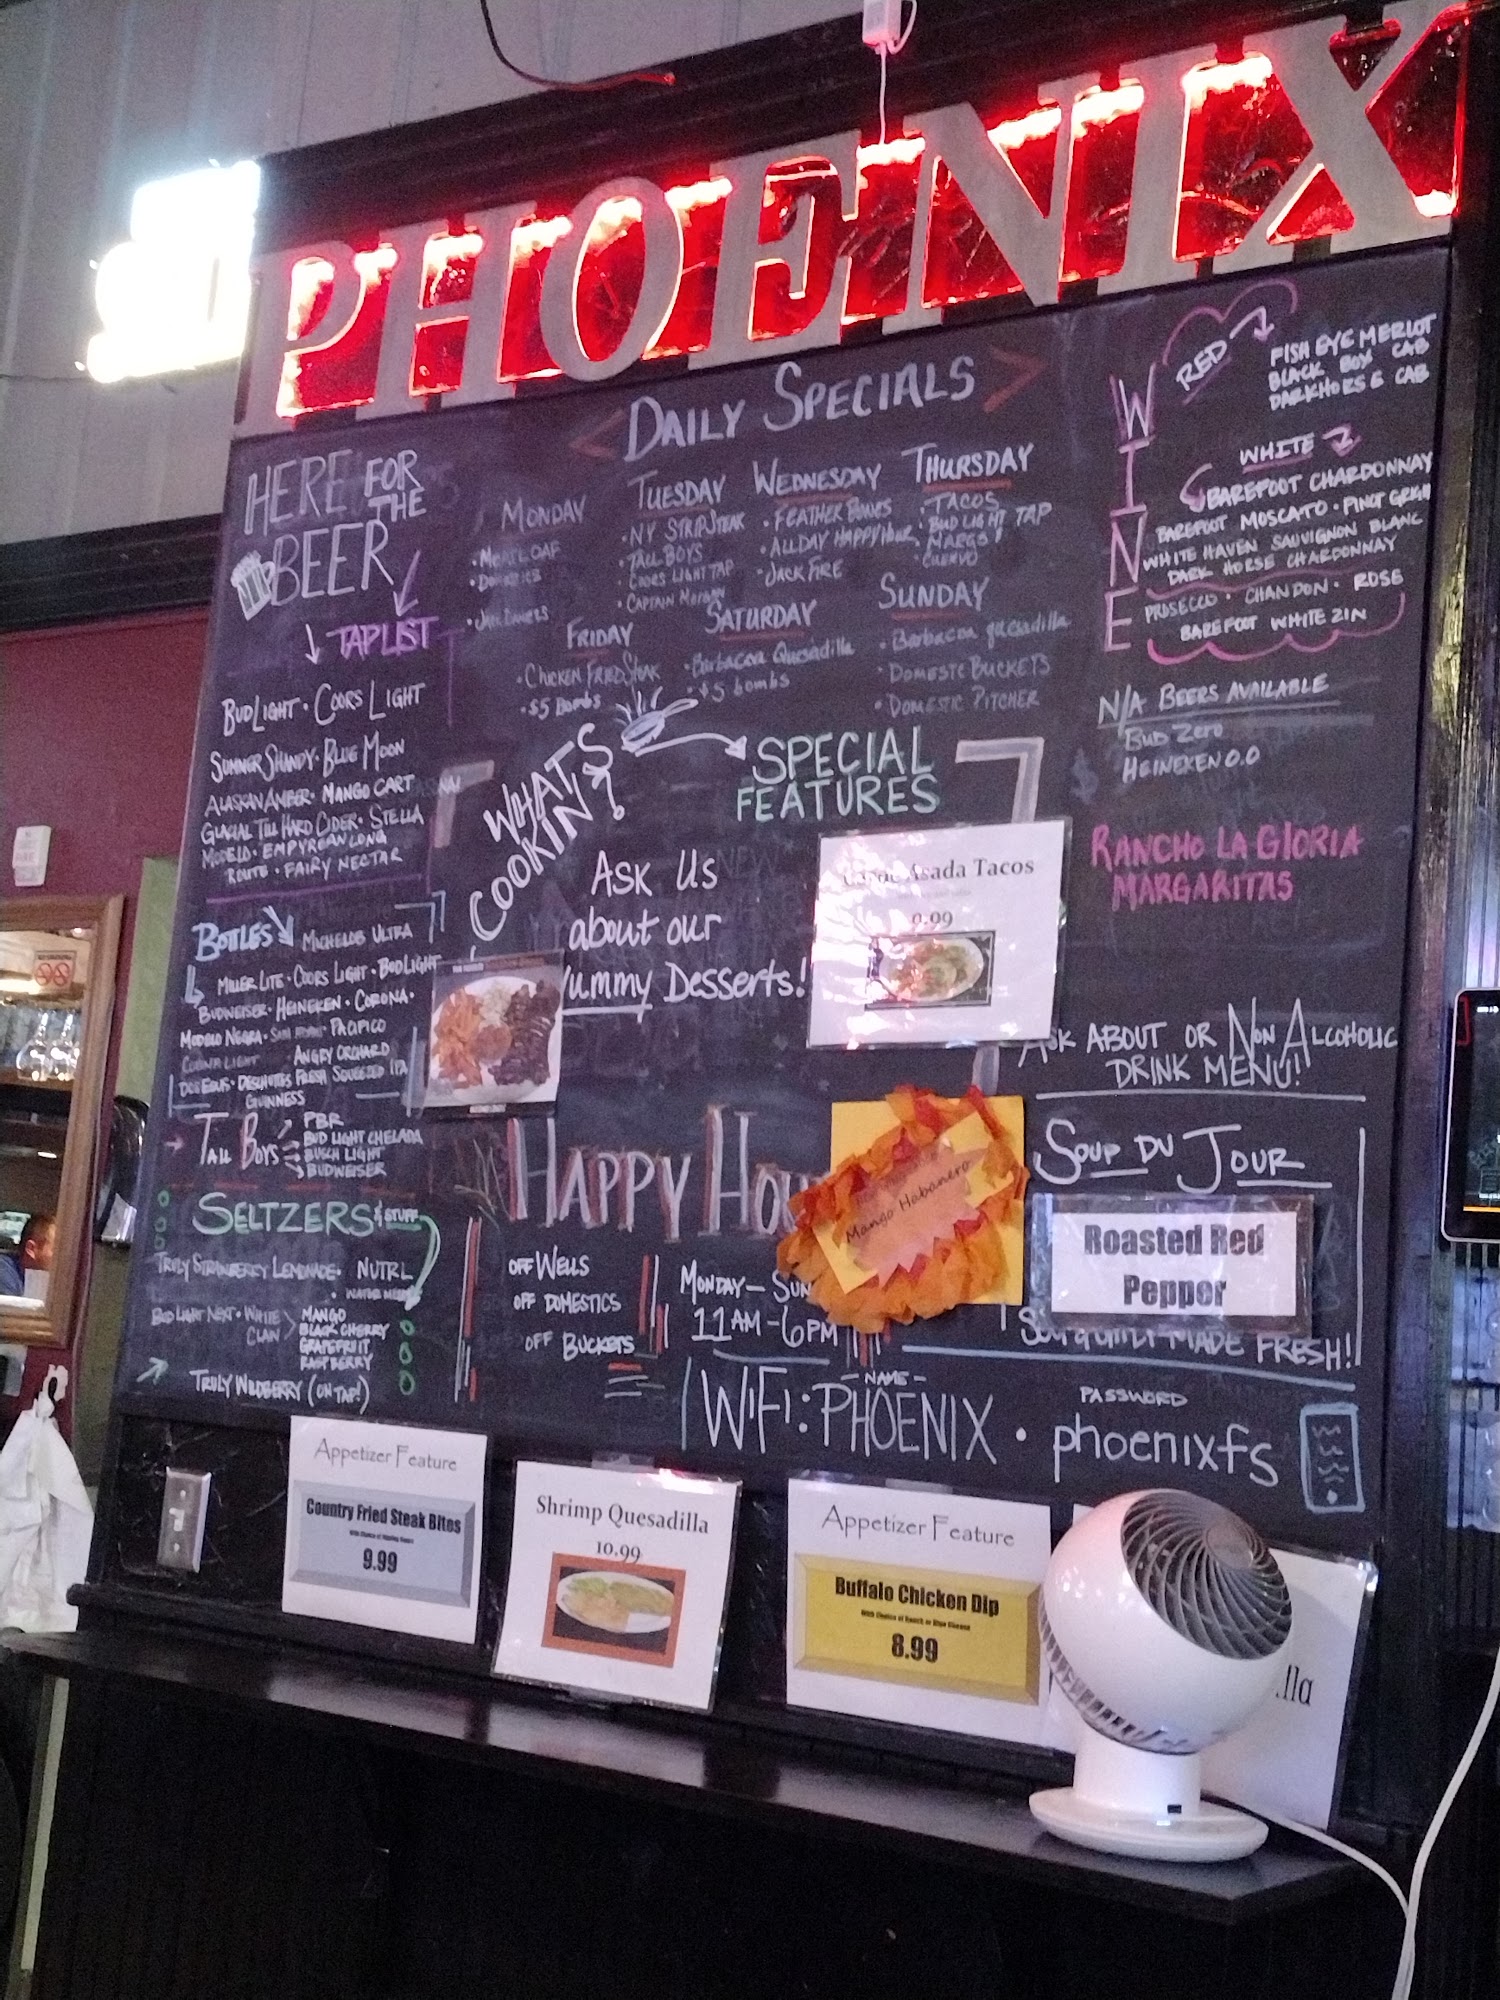 PHOENIX
DAILY SPECIALS
HERE FOR
THE
BEER
TAP LIST
BUD LIGHT · COORS LIGHT
SUMMER SHANDY · BLUE MOON
ALASKAN AMBER · MANGO CART
GLACIAL TILL HARD CIDER · STELLA
MODELO · EMPYREAN LONG
ROUTE · FAIRY NECTAR
BOTTLES
MICHELOB ULTRA
MILLER LITE · COORS LIGHT · BUD LIGHT
BUDWEISER · HEINEKEN · CORONA ·
MODELO NEGRA · PACIFICO
CORONA LIGHT ANGRY ORCHARD
DOS EQUIS · DESCHUTES FRESH SQUEEZED IPA
GUINNESS
TALL BOYS
PBR
BUD LIGHT CHELADA
BUSCH LIGHT
BUDWEISER
SELTZERS & STUFF
TRULY STRAWBERRY LEMONADE · NUTRL
BUD LIGHT NEXT · WHITE
CLAW
MANGO
BLACK CHERRY
GRAPEFRUIT
RASPBERRY
TRULY WILDBERRY (ON TAP!)
MONDAY
· MEATLOAF
· DOMESTICS
TUESDAY
· NY STRIP STEAK
· TALL BOYS
COORS LIGHT TAP
· CAPTAIN MORGAN
WEDNESDAY
· FEATHER BONES
· ALL DAY HAPPY HOUR
· JACK FIRE
THURSDAY
· TACOS
· BUD LIGHT TAP
· MARGS
CUERVO
FRIDAY
· CHICKEN FRIED STEAK
· $5 BOMBS
SATURDAY
· Barbacoa Quesadilla
· $5 bombs
SUNDAY
· Barbacoa quesadilla
· DOMESTIC BUCKETS
· DOMESTIC PITCHER
WHAT'S
COOKIN?
SPECIAL
FEATURES
ASK US
about our
Yummy Desserts!
Asada Tacos
9.99
HAPPY
OFF WELLS
OFF DOMESTICS
OFF BUCKETS
MONDAY - SUN
11AM - 6PM
Mango Habanero
WINE
RED
FISH EYE MERLOT
BLACK BOX CAB
DARKHORSE CAB
WHITE
BAREFOOT CHARDONNAY
BAREFOOT MOSCATO · PINOT GRIGIO
WHITE HAVEN SAUVIGNON BLANC
DARK HORSE CHARDONNAY
PROSECCO · CHANDON · ROSE
BAREFOOT WHITE ZIN
N/A BEERS AVAILABLE
BUD ZERO
HEINEKEN 0.0
RANCHO LA GLORIA
MARGARITAS
ASK ABOUT OR NON ALCOHOLIC
DRINK MENU!!
SOUP DU JOUR
Roasted Red
Pepper
MADE FRESH!
- NAME -
WIFI: PHOENIX ·
PASSWORD
phoenixfs
Appetizer Feature
Country Fried Steak Bites
9.99
Shrimp Quesadilla
10.99
Appetizer Feature
Buffalo Chicken Dip
With Choice of Ranch or Blue Cheese
8.99